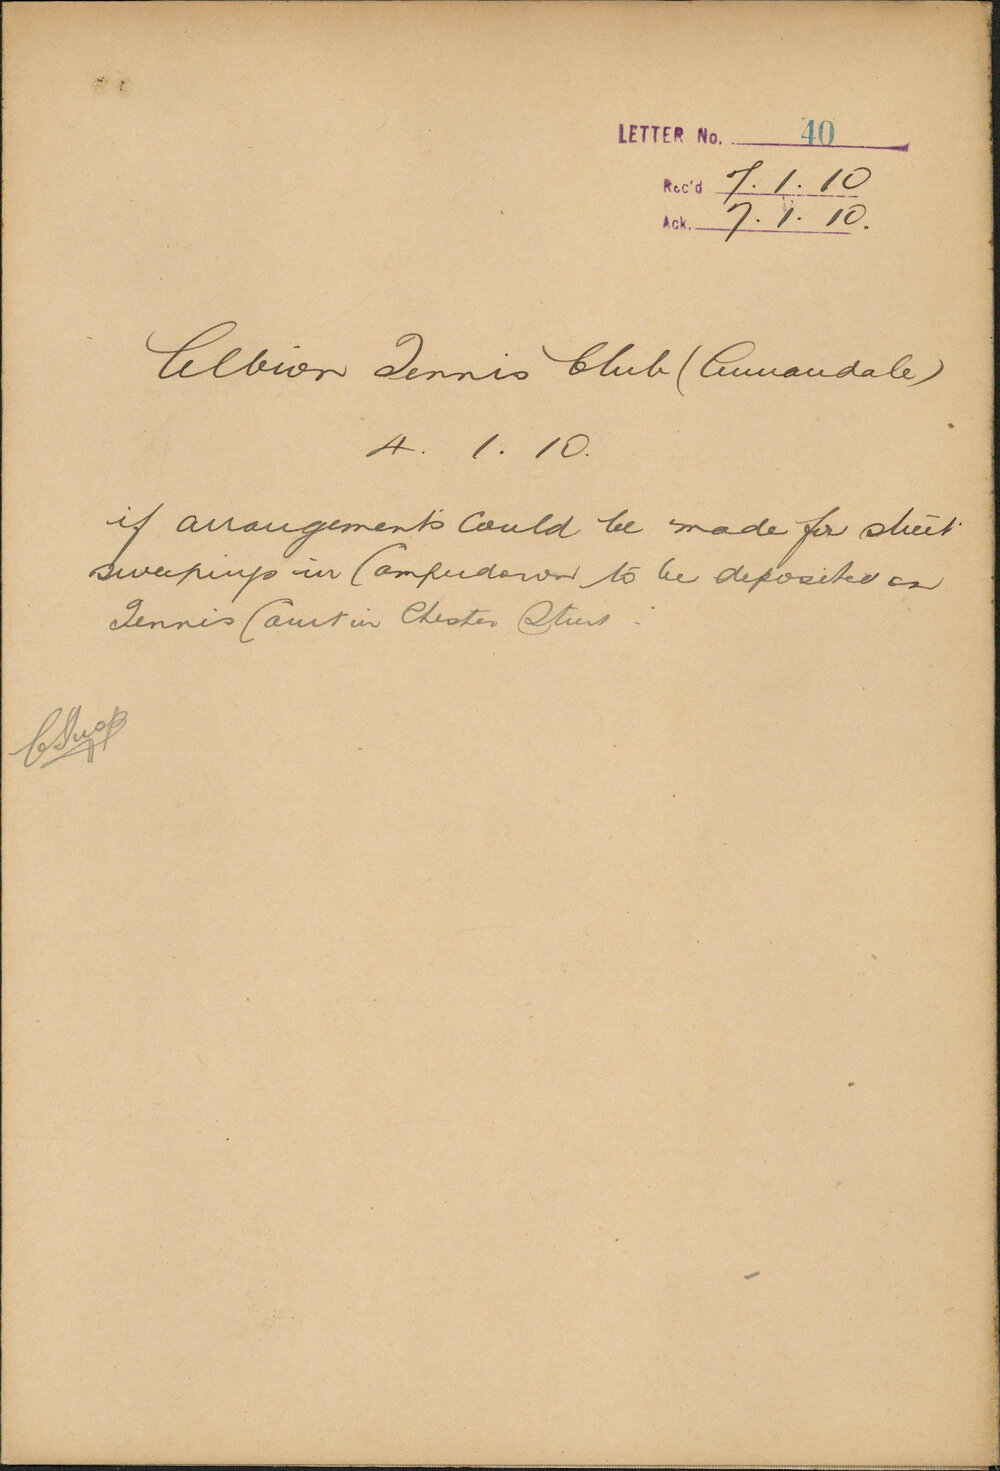 LETTER No. 40
Rec'd 7. 1. 10
Ack. 7. 1. 10.
Albion Tennis Club (Annandale)
4. 1. 10.
if arrangements could be made for street
sweepings in Camperdown to be deposited on
Tennis Court in Chester Street.